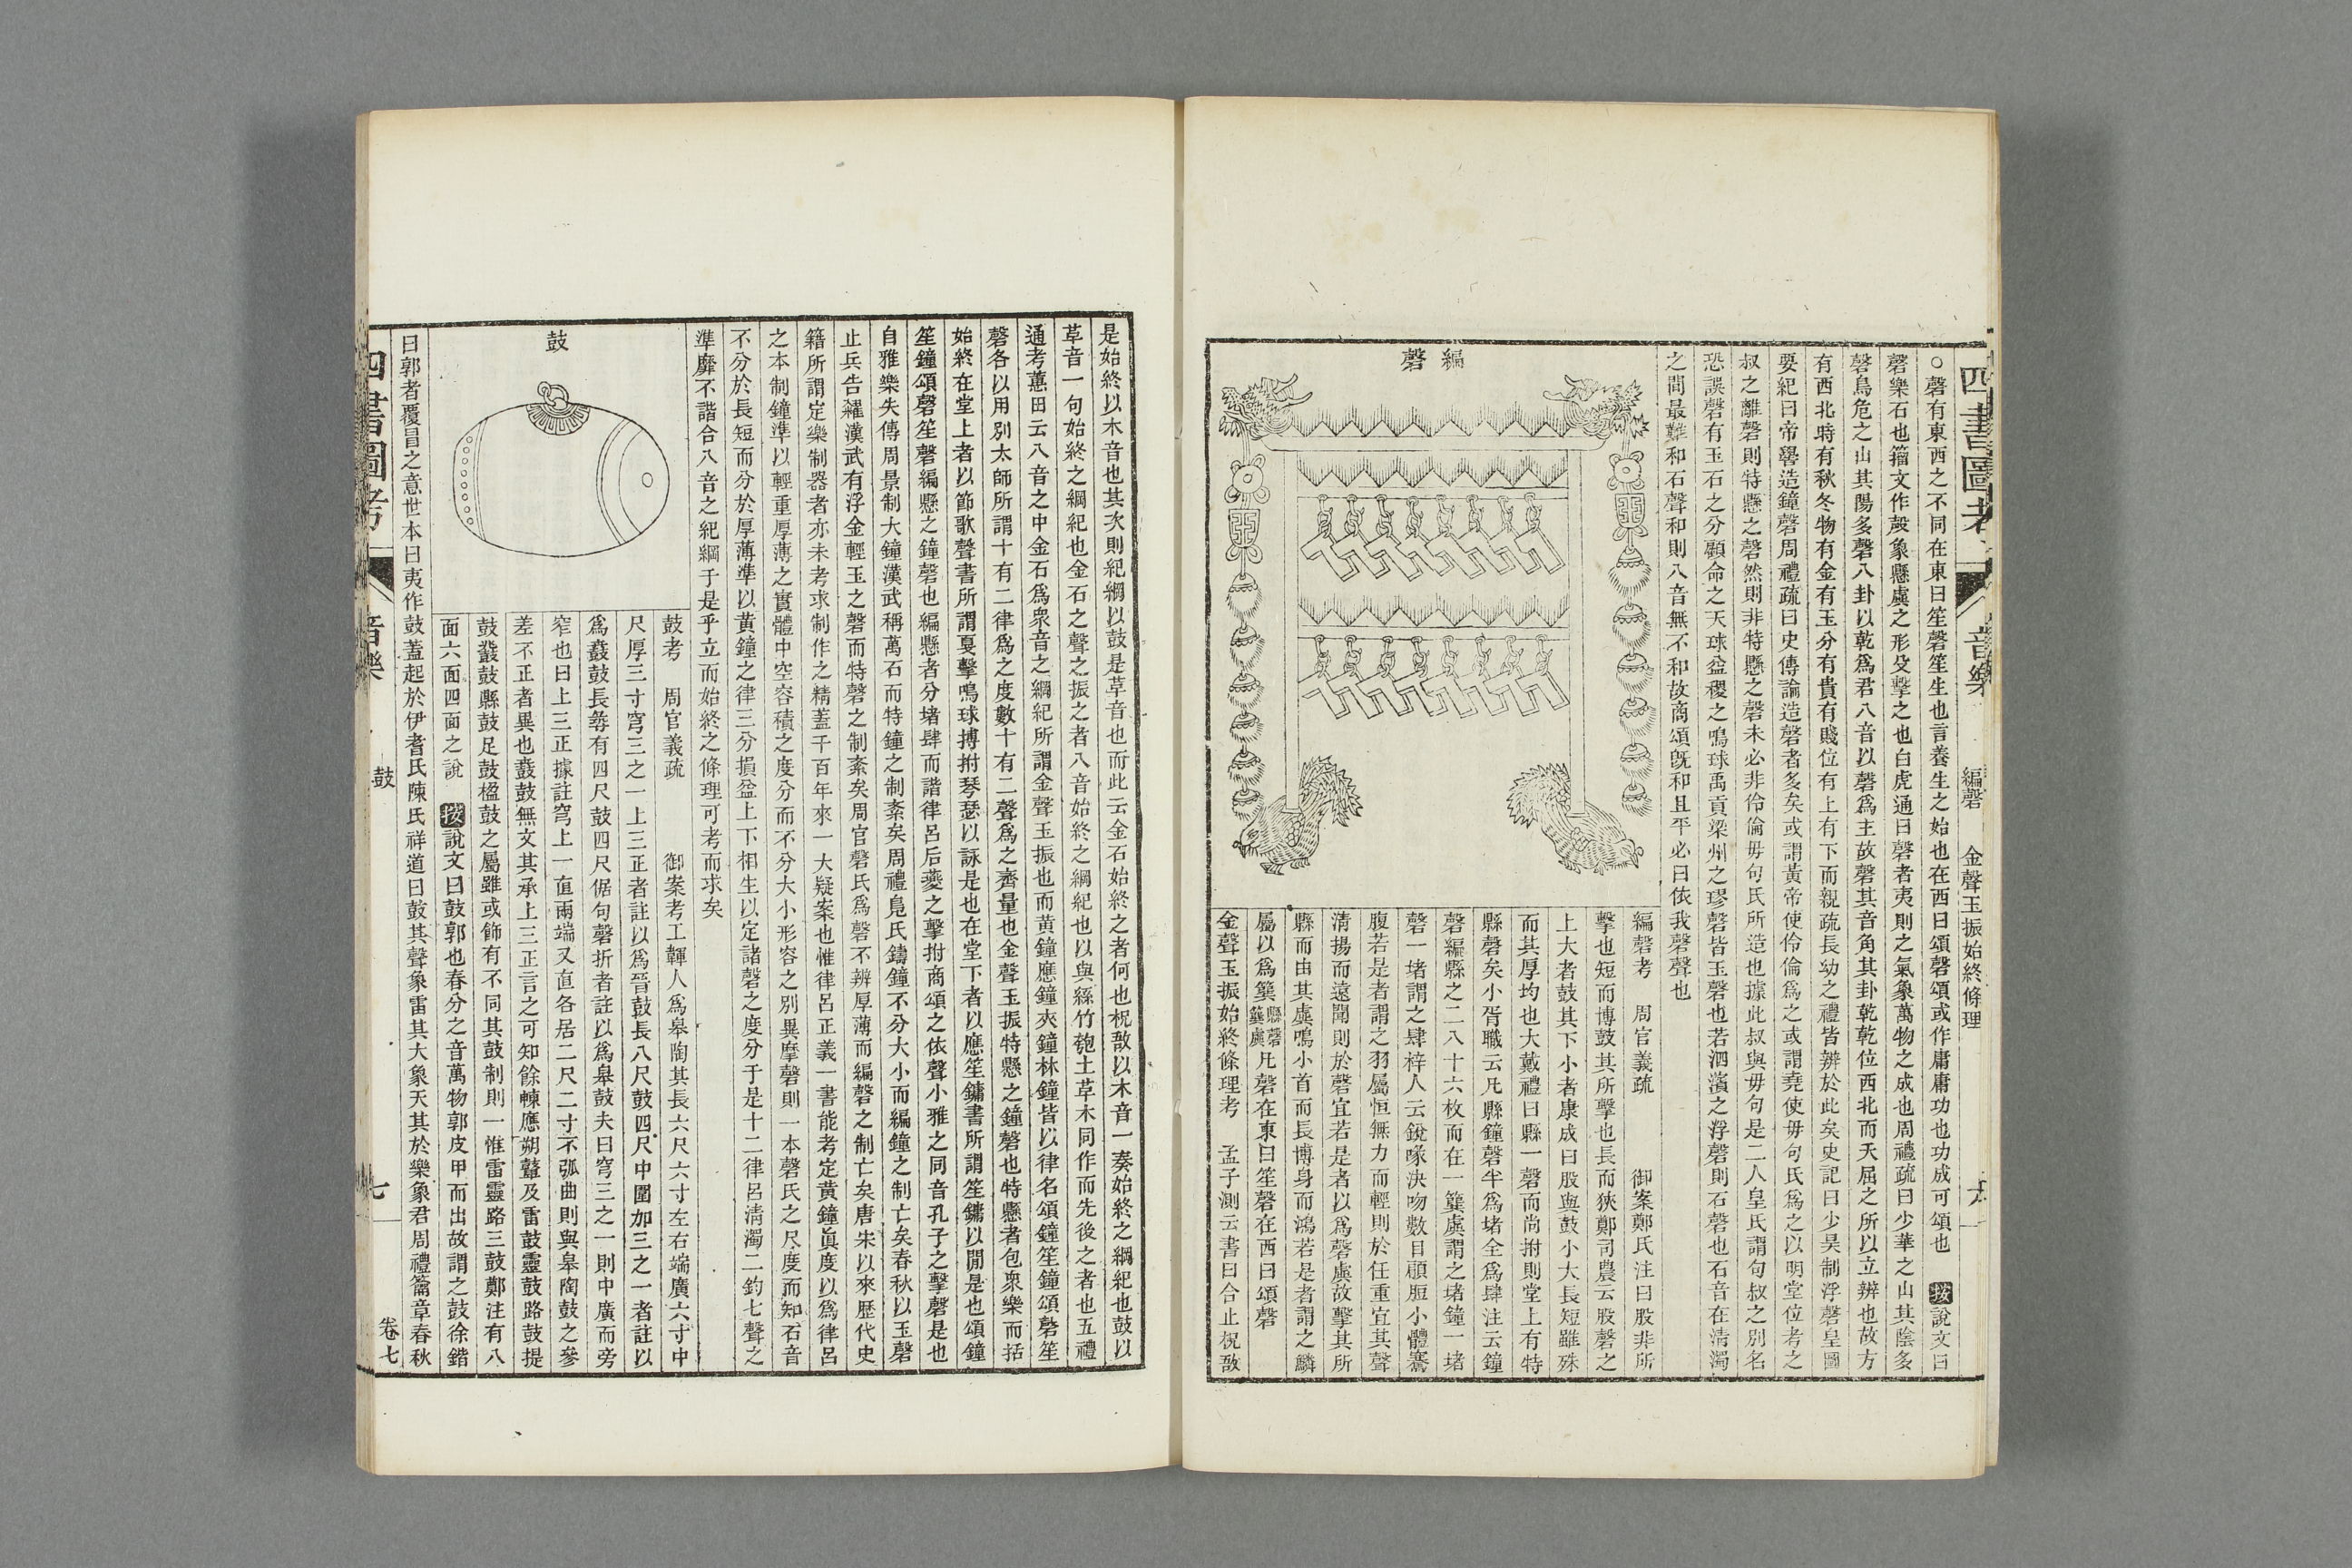 四書圖考
音樂
編磬 金聲玉振始終條理
六
○磬有東西之不同在東曰笙磬笙生也言養生之始也在西曰頌磬頌或作庸庸功也功成可頌也 按說文曰
磬樂石也籀文作殸象懸虡之形殳擊之也白虎通曰磬者夷則之氣象萬物之成也周禮疏曰少華之山其陰多
磬鳥危之山其陽多磬八卦以乾爲君八音以磬爲主故磬其音角其卦乾乾位西北而天屈之所以立辨也故方
有西北時有秋冬物有金有玉分有貴有賤位有上有下而親疏長幼之禮皆辨於此矣史記曰少昊制浮磬皇圖
要紀曰帝嚳造鐘磬周禮疏曰史傳論造磬者多矣或謂黃帝使伶倫爲之或謂堯使毋句氏爲之以明堂位考之
叔之離磬則特懸之磬然則非特懸之磬未必非伶倫毋句氏所造也據此叔與毋句是二人皇氏謂句叔之別名
恐誤磬有玉石之分顧命之天球益稷之鳴球禹貢梁州之璆磬皆玉磬也若泗濱之浮磬則石磬也石音在淸濁
之間最難和石聲和則八音無不和故商頌旣和且平必曰依我磬聲也
編磬
編磬考 周官義疏 御案鄭氏注曰股非所
擊也短而博鼓其所擊也長而狹鄭司農云股磬之
上大者鼓其下小者康成曰股與鼓小大長短雖殊
而其厚均也大戴禮曰縣一磬而尚拊則堂上有特
縣磬矣小胥職云凡縣鐘磬半爲堵全爲肆注云鐘
磬編縣之二八十六枚而在一簴虡謂之堵鐘一堵
磬一堵謂之肆梓人云銳喙決吻數目顅脰小體騫
腹若是者謂之羽屬恒無力而輕則於任重宜其聲
淸揚而遠聞則於磬宜若是者以爲磬虡故擊其所
縣而由其虡鳴小首而長博身而鴻若是者謂之鱗
屬以爲簨縣磬簨虡凡磬在東曰笙磬在西曰頌磬
金聲玉振始終條理考 孟子測云書曰合止柷敔
是始終以木音也其次則紀綱以鼓是草音也而此云金石始終之者何也柷敔以木音一奏始終之綱紀也鼓以
草音一句始終之綱紀也金石之聲之振之者八音始終之綱紀也以與絲竹匏土草木同作而先後之者也五禮
通考蕙田云八音之中金石爲衆音之綱紀所謂金聲玉振也而黃鐘應鐘夾鐘林鐘皆以律名頌鐘笙鐘頌磬笙
磬各以用別太師所謂十有二律爲之度數十有二聲爲之齊量也金聲玉振特懸之鐘磬也特懸者包衆樂而括
始終在堂上者以節歌聲書所謂戛擊鳴球搏拊琴瑟以詠是也在堂下者以應笙鏞書所謂笙鏞以間是也頌鐘
笙鐘頌磬笙磬編懸之鐘磬也編懸者分堵肆而諧律呂后夔之擊拊商頌之依聲小雅之同音孔子之擊磬是也
自雅樂失傳周景制大鐘漢武稱萬石而特鐘之制紊矣周禮鳧氏鑄鐘不分大小而編鐘之制亡矣春秋以玉磬
止兵告糴漢武有浮金輕玉之磬而特磬之制紊矣周官磬氏爲磬不辨厚薄而編磬之制亡矣唐宋以來歷代史
籍所謂定樂制器者亦未考求制作之精蓋千百年來一大疑案也惟律呂正義一書能考定黃鐘眞度以爲律呂
之本制鐘準以輕重厚薄之實體中空容積之度分而不分大小形容之別異摩磬則一本磬氏之尺度而知石音
不分於長短而分於厚薄準以黃鐘之律三分損益上下相生以定諸磬之度分于是十二律呂淸濁二鈞七聲之
準靡不諧合八音之紀綱于是乎立而始終之條理可考而求矣
鼓
鼓考 周官義疏 御案考工韗人爲皋陶其長六尺六寸左右端廣六寸中
尺厚三寸穹三之一上三正者註以爲晉鼓長八尺鼓四尺中圍加三之一者註以
爲鼖鼓長尋有四尺鼓四尺倨句磬折者註以爲皋鼓夫曰穹三之一則中廣而旁
窄也曰上三正據註穹上一直兩端又直各居二尺二寸不弧曲則與皋陶鼓之參
差不正者異也鼖鼓無文其承上三正言之可知餘㯥應朔鼙及雷鼓靈鼓路鼓提
鼓鼗鼓縣鼓足鼓楹鼓之屬雖或飾有不同其鼓制則一惟雷靈路三鼓鄭注有八
面六面四面之說 按說文曰鼓郭也春分之音萬物郭皮甲而出故謂之鼓徐鍇
曰郭者覆冒之意世本曰夷作鼓蓋起於伊耆氏陳氏祥道曰鼓其聲象雷其大象天其於樂象君周禮籥章春秋
四書圖考
音樂
鼓
七
卷七